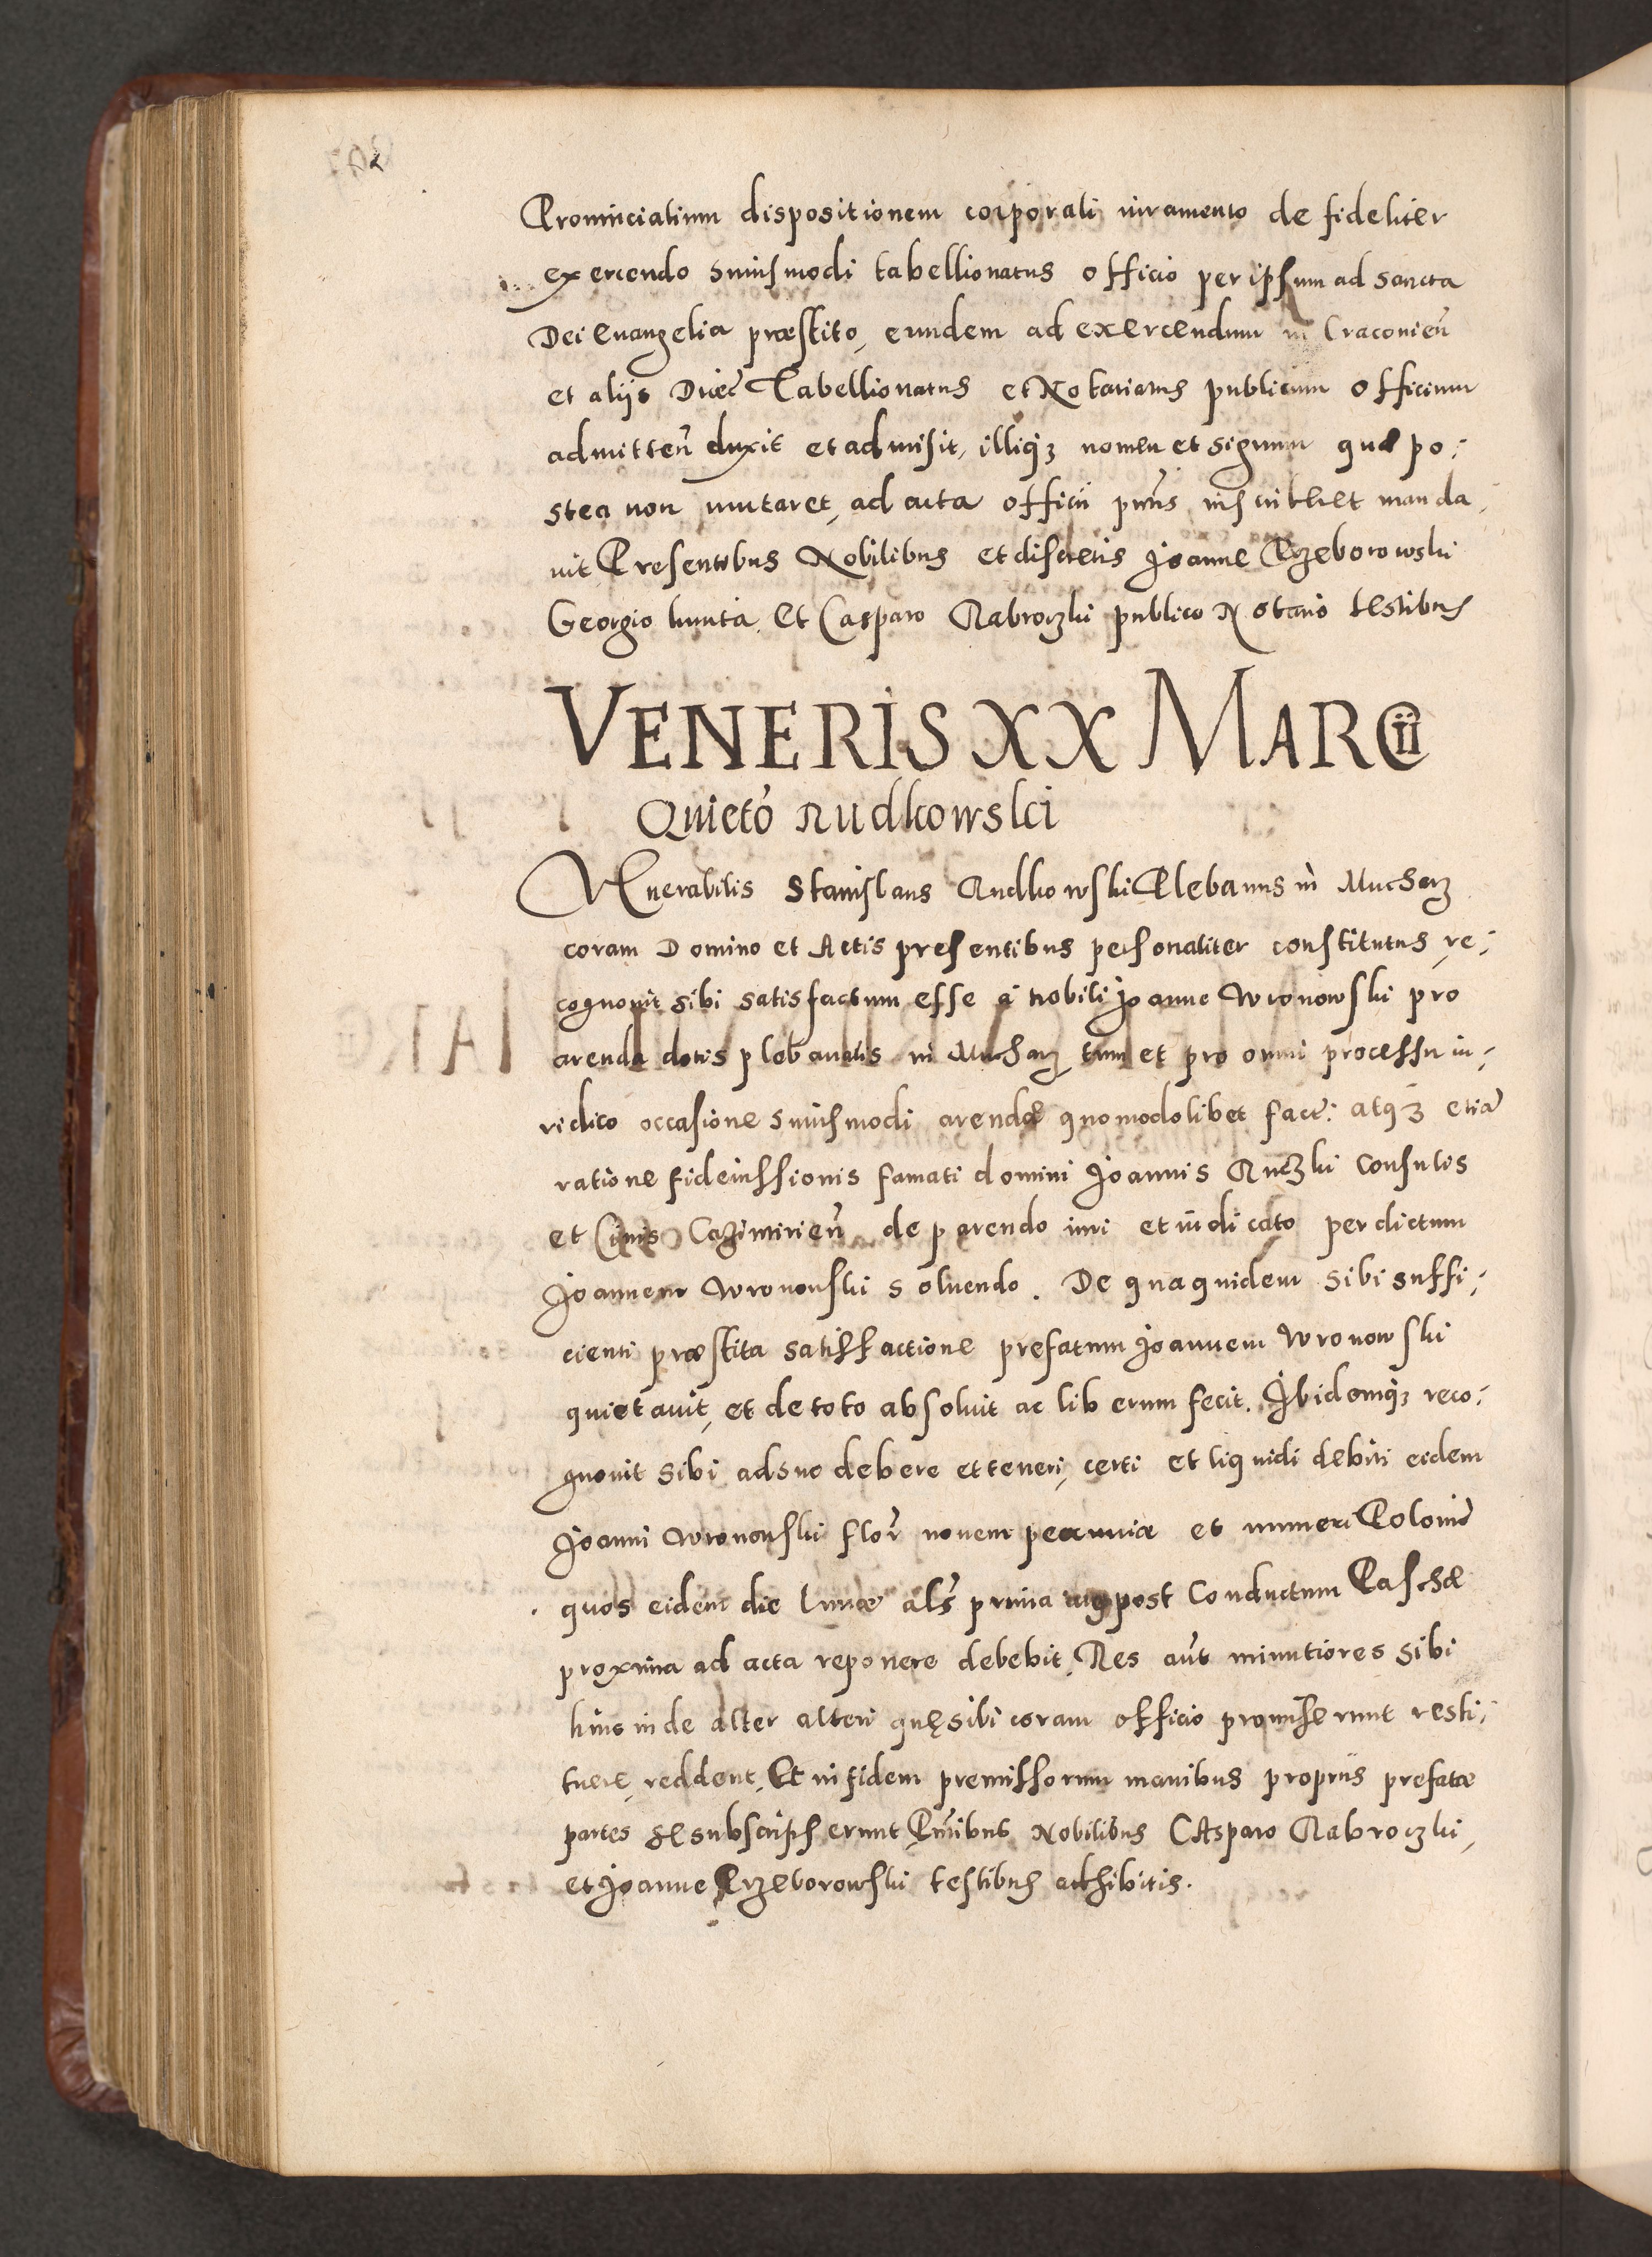 Prouinciatium dispositionem corporali iuramento de fideliter
exercendo huiusmodi tabellionatus officio per ipsum ad sancta
Dei euangelia præstito, eundem ad exercendum in Cracouieñ
et aliis Dioec̃ Tabellionatus et Notariatus publicum officium
admitteñ duxit et admisit, illiq3 nomen et signum quæ po:
stea non mutaret, ad acta officii pñtis inscriberet manda,
uit Presentibus Nobilibus et discretis Joanne Przeborowski
Georgio et Casparo Nabroczki publico Notario testibus
VENERIS XX MARCii
Quieto Rudkowski
Venerabilis Stanislaus Rudkowski Plebanus in Mucharz
coram Domino et Actis presentibus personaliter constitutus, re:
cognouit sibi satisfactum esse a nobili Joanne Wronowski pro
arenda dotis plebanalis in Mucharz tum et pro omni processu iu,
ridico occasione huiusmodi arendæ quomodolibet fact: atq3 etiã
ratione fideiussionis famati domini Joannis Ruczki Consulis
et Ciuis Cazimirieñ de parendo iuri et iudicato per dictum
Joannem Wronowski soluendo. De qua quidem sibi suffi:
cienti præstita satisfactione prefatum Joannem Wronowski
quietauit, et de toto absoluit ac liberum fecit. Ibidemq3 reco:
gnouit sibi adsuo debere et teneri, certi et liquidi debiti eidem
Joanni Wronowski flor̃ nouem pecuniæ et numeri Polonic̃
quos eidem die Lunæ als̃ prima post Conductum Paschæ
proxima ad acta reponere debebit. Res aũt minutiores sibi
hinc inde alter alteri quę sibi coram officio promiserunt resti:
tuere, reddent. Et in fidem premissorum manibus propriis prefatæ
partes se subscripserunt Pñtibus Nobilibus CAsparo Nabroczki,
et Joanne Przeborowski testibus adhibitis.